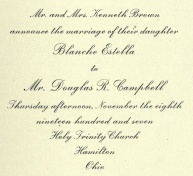 Mr. and Mrs. Kenneth Brown
announce the marriage of their daughter
Blanche Estella
to
Mr. Douglas R. Campbell
Thursday afternoon, November the eighth
nineteen hundred and seven
Holy Trinity Church
Hamilton
Ohio